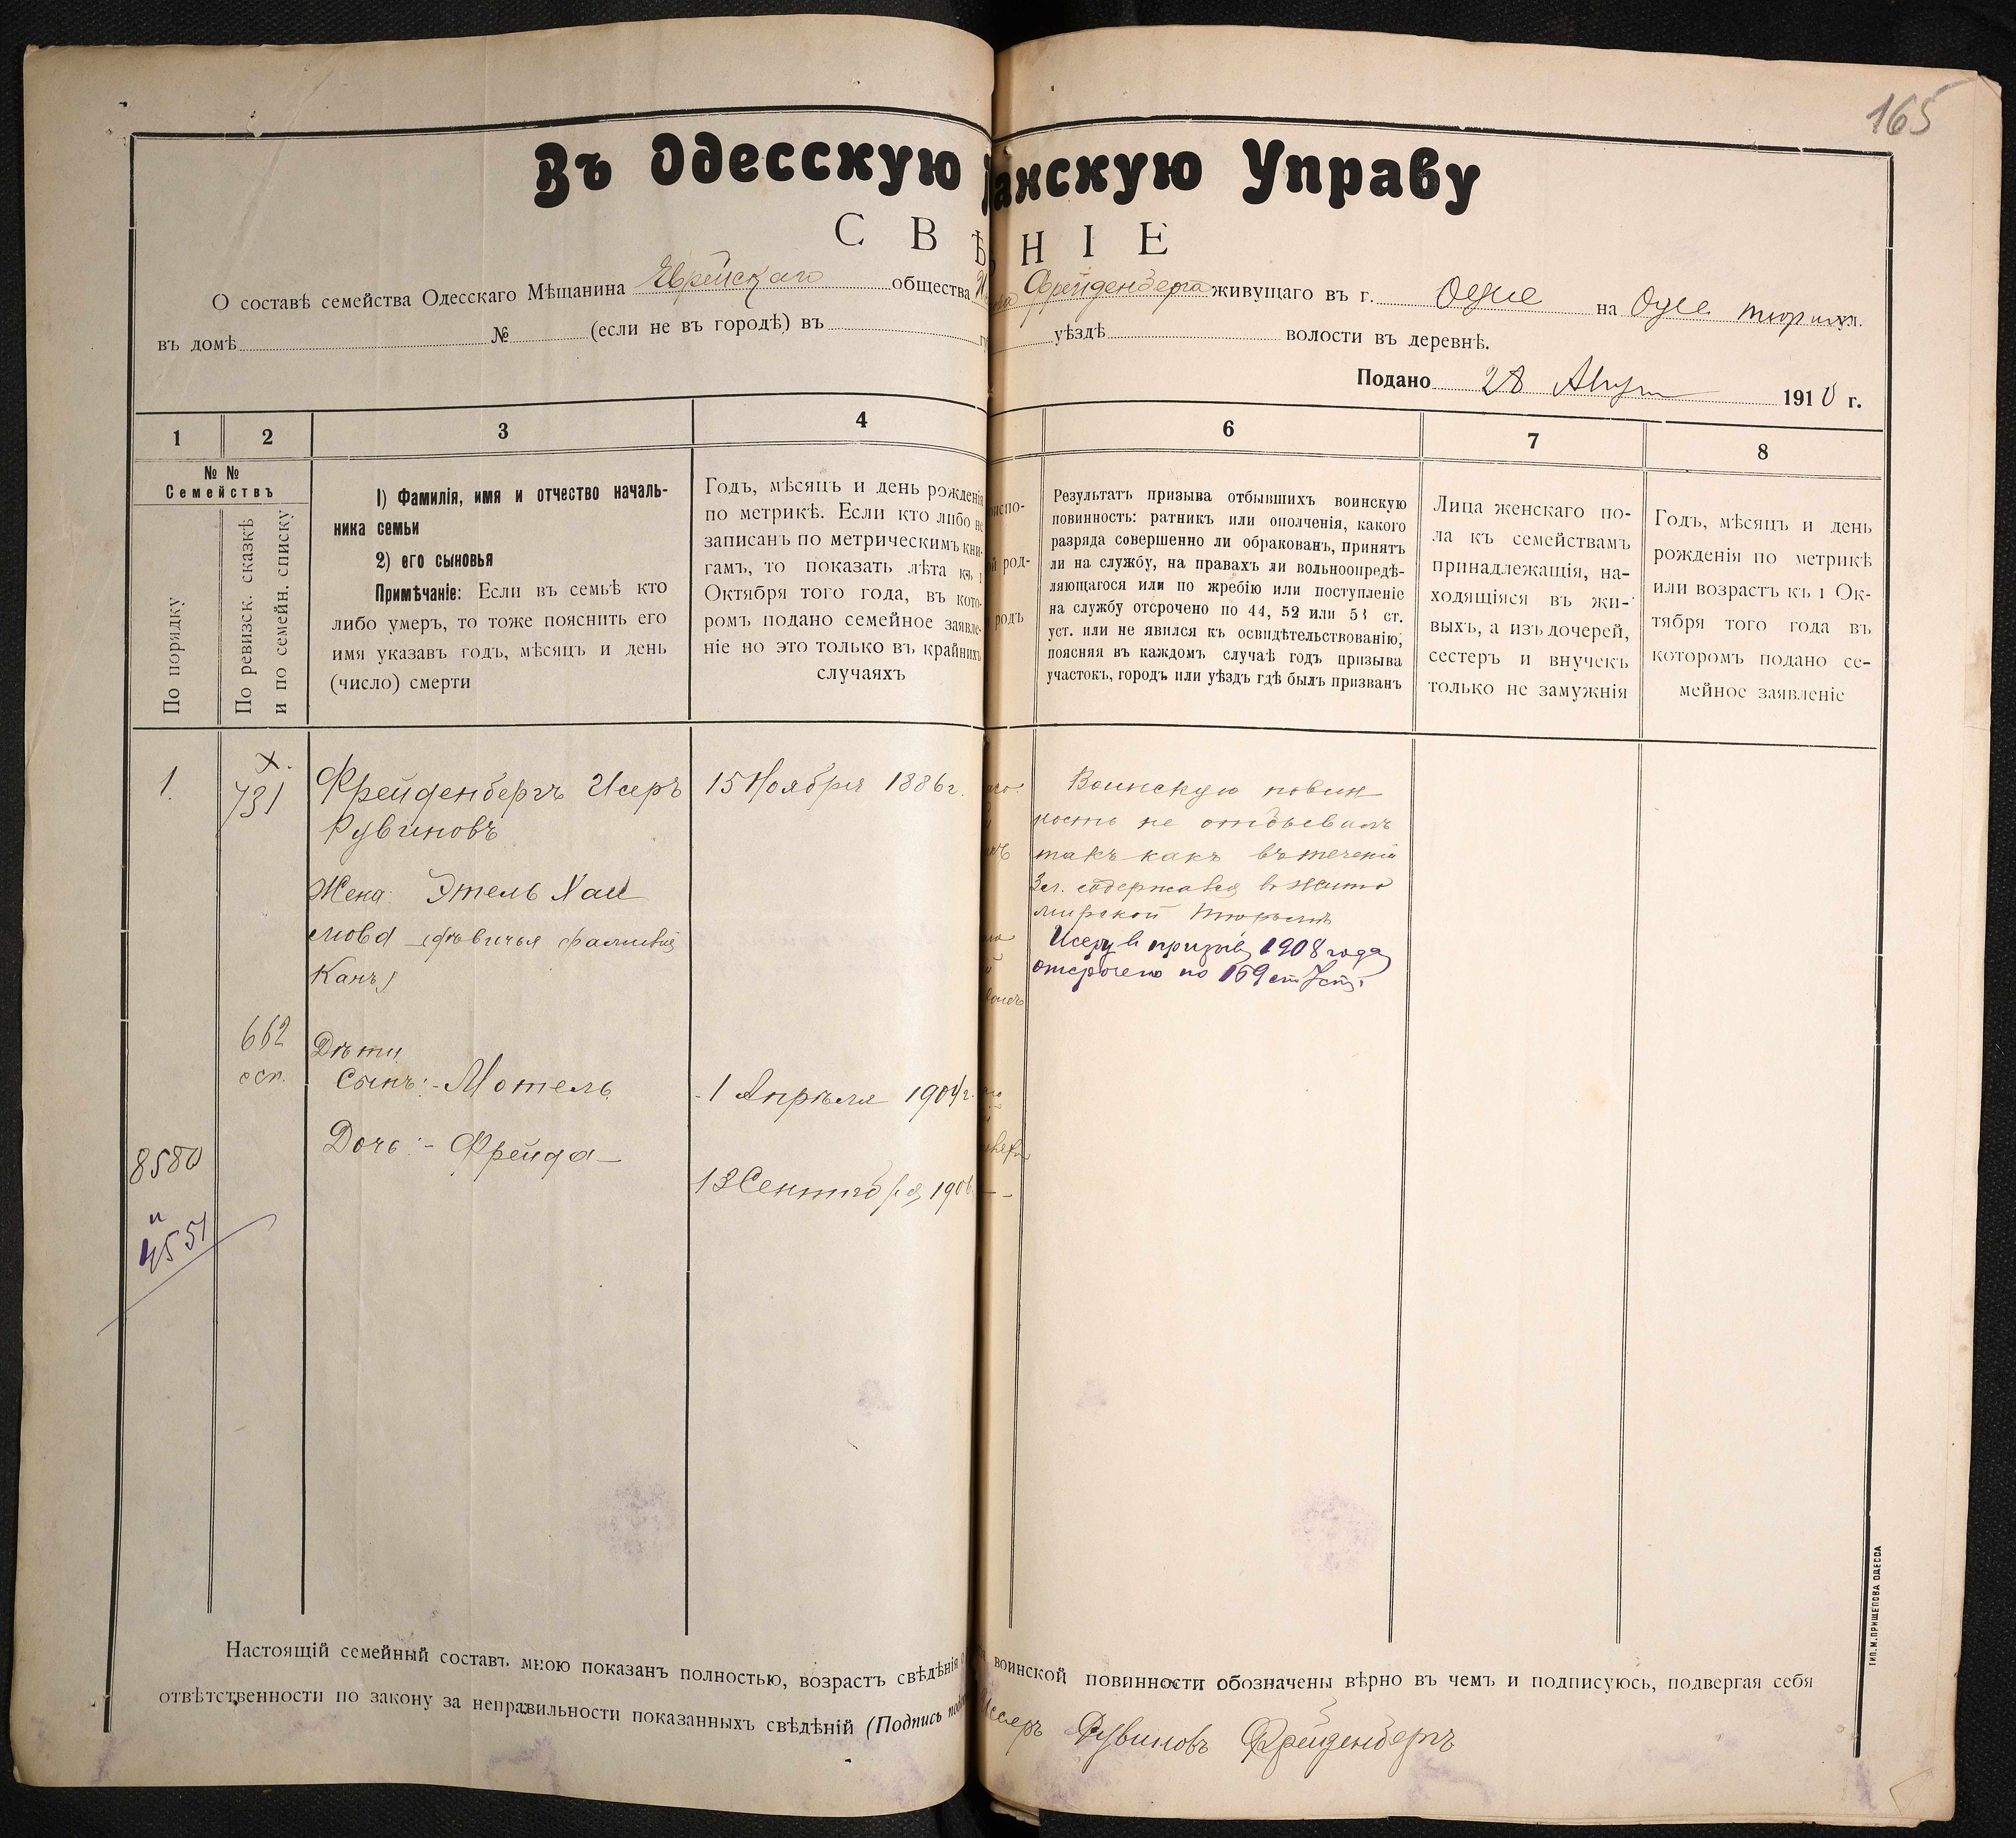 165
Въ Одесскую анскую Управу
СВѢНІЕ
О составѣ семейства Одесскаго Мѣщанина Еврейскаго общества Фрейденберга живущаго въ г. Одссе на Одсс тюрьм ул.
въ домѣ № (если не въ городѣ) въ уѣздѣ волости въ деревнѣ.
Подано 28 Август 1910 г.
1 2 3 4 6 7 8
№ №
Семействъ
По порядку
По ревизск. сказкѣ
и по семейн. списку
1) Фамилія, имя и отчество началь-
ника семьи
2) его сыновья
Примѣчаніе: Если въ семьѣ кто
либо умеръ, то тоже пояснить его
имя указавъ годъ, мѣсяцъ и день
(число) смерти
Годъ, мѣсяцъ и день рожденія
по метрикѣ. Если кто либо не
записанъ по метрическимъ кни-
гамъ, то показать лѣта къ 1
Октября того года, въ кото-
ромъ подано семейное заявле-
ніе но это только въ крайнихъ
случаяхъ
испо-
й род-
родъ
Результатъ призыва отбывшихъ воинскую
повинность: ратникъ или ополченія, какого
разряда совершенно ли обракованъ, принятъ
ли на службу, на правахъ ли вольноопредѣ-
ляющагося или по жребію или поступленіе
на службу отсрочено по 44, 52 или 53 ст.
уст. или не явился къ освидѣтельствованію,
поясняя въ каждомъ случаѣ годъ призыва
участокъ, городъ или уѣздъ гдѣ былъ призванъ
Лица женскаго по-
ла къ семействамъ
принадлежащія, на-
ходящіяся въ жи-
выхъ, а изъ дочерей,
сестеръ и внучекъ
только не замужнія
Годъ, мѣсяцъ и день
рожденія по метрикѣ
или возрастъ къ 1 Ок-
тября того года въ
которомъ подано се-
мейное заявленіе
1. х. 731
Фрейденбергъ Исеръ
Рувиновъ
15 Ноября 1886 г.
Жена: Этель Хаи
мова (дѣвичья фамилія
Канъ)
662
Дѣти
Сынъ:- Мотель
1 Апрѣля 1904 г.
Дочь:- Фрейда
13 Сентября 1906
8580
и
4551
Воинскую повин
ность не отбывалъ
такъ какъ въ теченіи
3 г. содержався въ Жито
мирской тюрьмѣ
Исеру въ призывъ 1908 года
отсрочено по 169 ст Уст.
Настоящій семейный составъ мною показанъ полностью, возрастъ свѣдѣнія воинской повинности обозначены вѣрно въ чемъ и подписуюсь, подвергая себя
отвѣтственности по закону за неправильности показанныхъ свѣдѣній (Подпись Иссеръ Рувиновъ Фрейденбергъ
ТИП. М. ПРИЩЕПОВА ОДЕССА